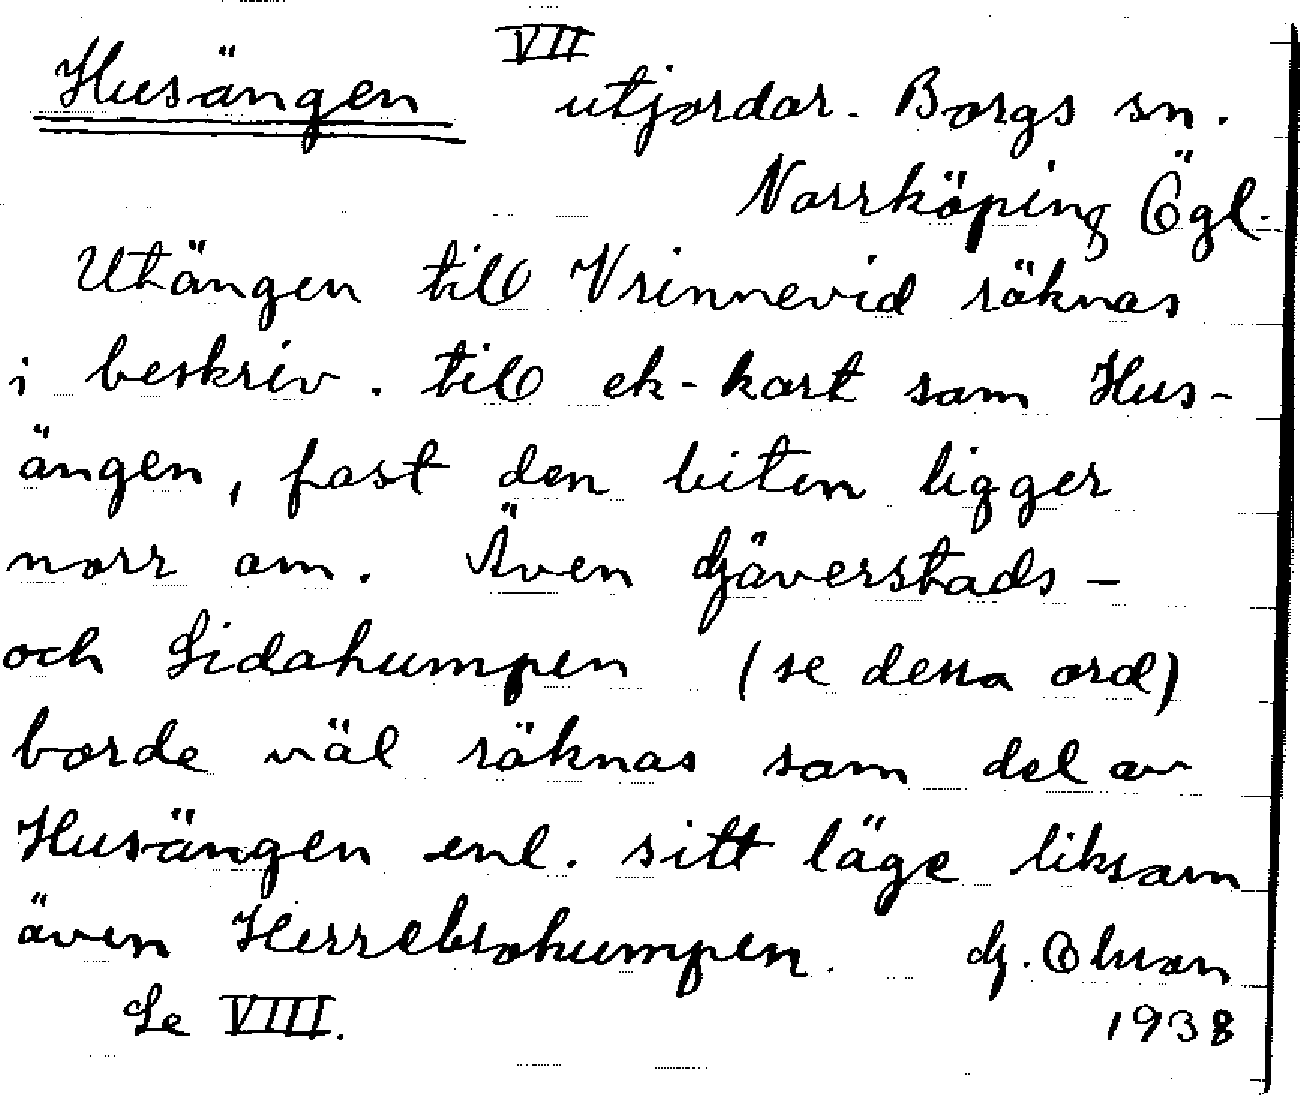 VII
Husängen utjordar. Borgs sn.
Norrköping Ögl.
Utängen till Vrinnevid räknas
i beskriv. till ek-kart som Hus-
ängen, fast den biten ligger
norr om. Även Gäverstads-
och Lidahumpen (se dessa ord)
borde väl räknas som del av
Husängen enl. sitt läge liksom
även Herrebrohumpen. G. Olsson
Se VIII. 1938